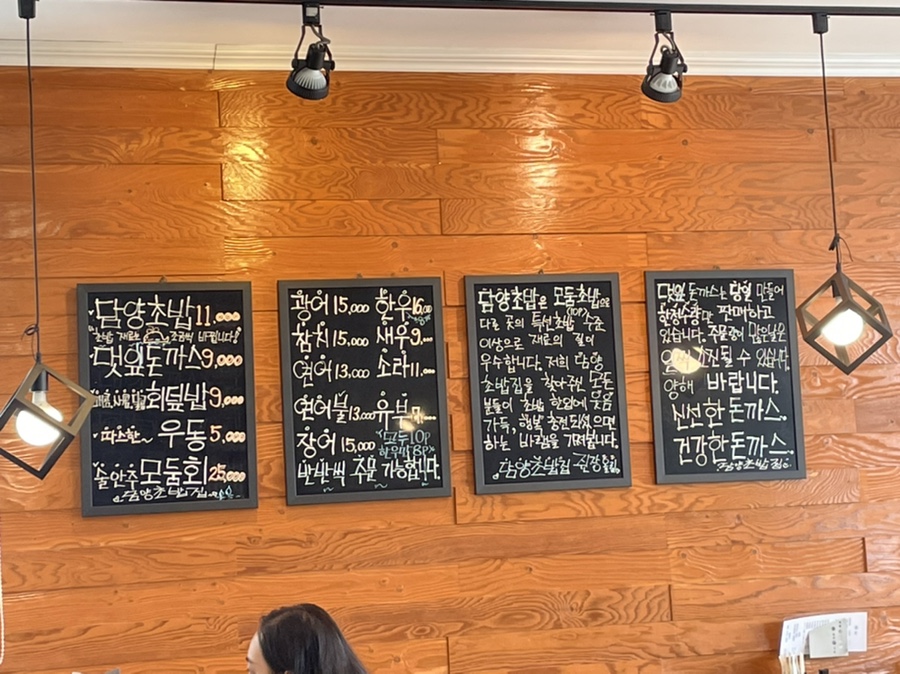 담양초밥 11.000
초밥 재료는 조금씩 바뀝니다!
댓잎돈까스 9,000
회덮밥 9,000
따스한~ 우동 5,000
술안주 모둠회 25,000
담양초밥집
광어 15,000 한우 16,000
참치 15,000 새우 9...
연어 13,000 소라 11...
연어불 13,000 유부
장어 15,000 모두 10P
한우만 8P
반반씩 주문 가능합니다.
담양초밥은 모둠초밥으로
(10P)
다른 곳의 특선초밥 수준
이상으로 재료의 질이
우수합니다. 저희 담양
초밥집을 찾아주신 모든
분들이 초밥 한입에 웃음
가득, 행복 충전되셨으면
하는 바램을 가져봅니다.
담양초밥집
댓잎 돈까스는 당일 만들어
한정수량만 판매하고
있습니다. 주문량이 많은날은
일찍 소진될 수 있습니다.
양해 바랍니다.
신선한 돈까스.
건강한 돈까스.
담양초밥집.